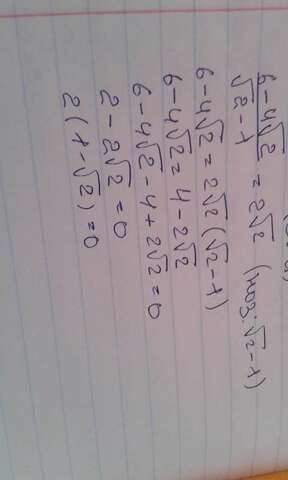 6-4√2/√2-1 = 2√2 (ноз: √2-1)
6-4√2 = 2√2 (√2-1)
6-4√2 = 4-2√2
6-4√2-4+2√2=0
2-2√2=0
2(1-√2)=0